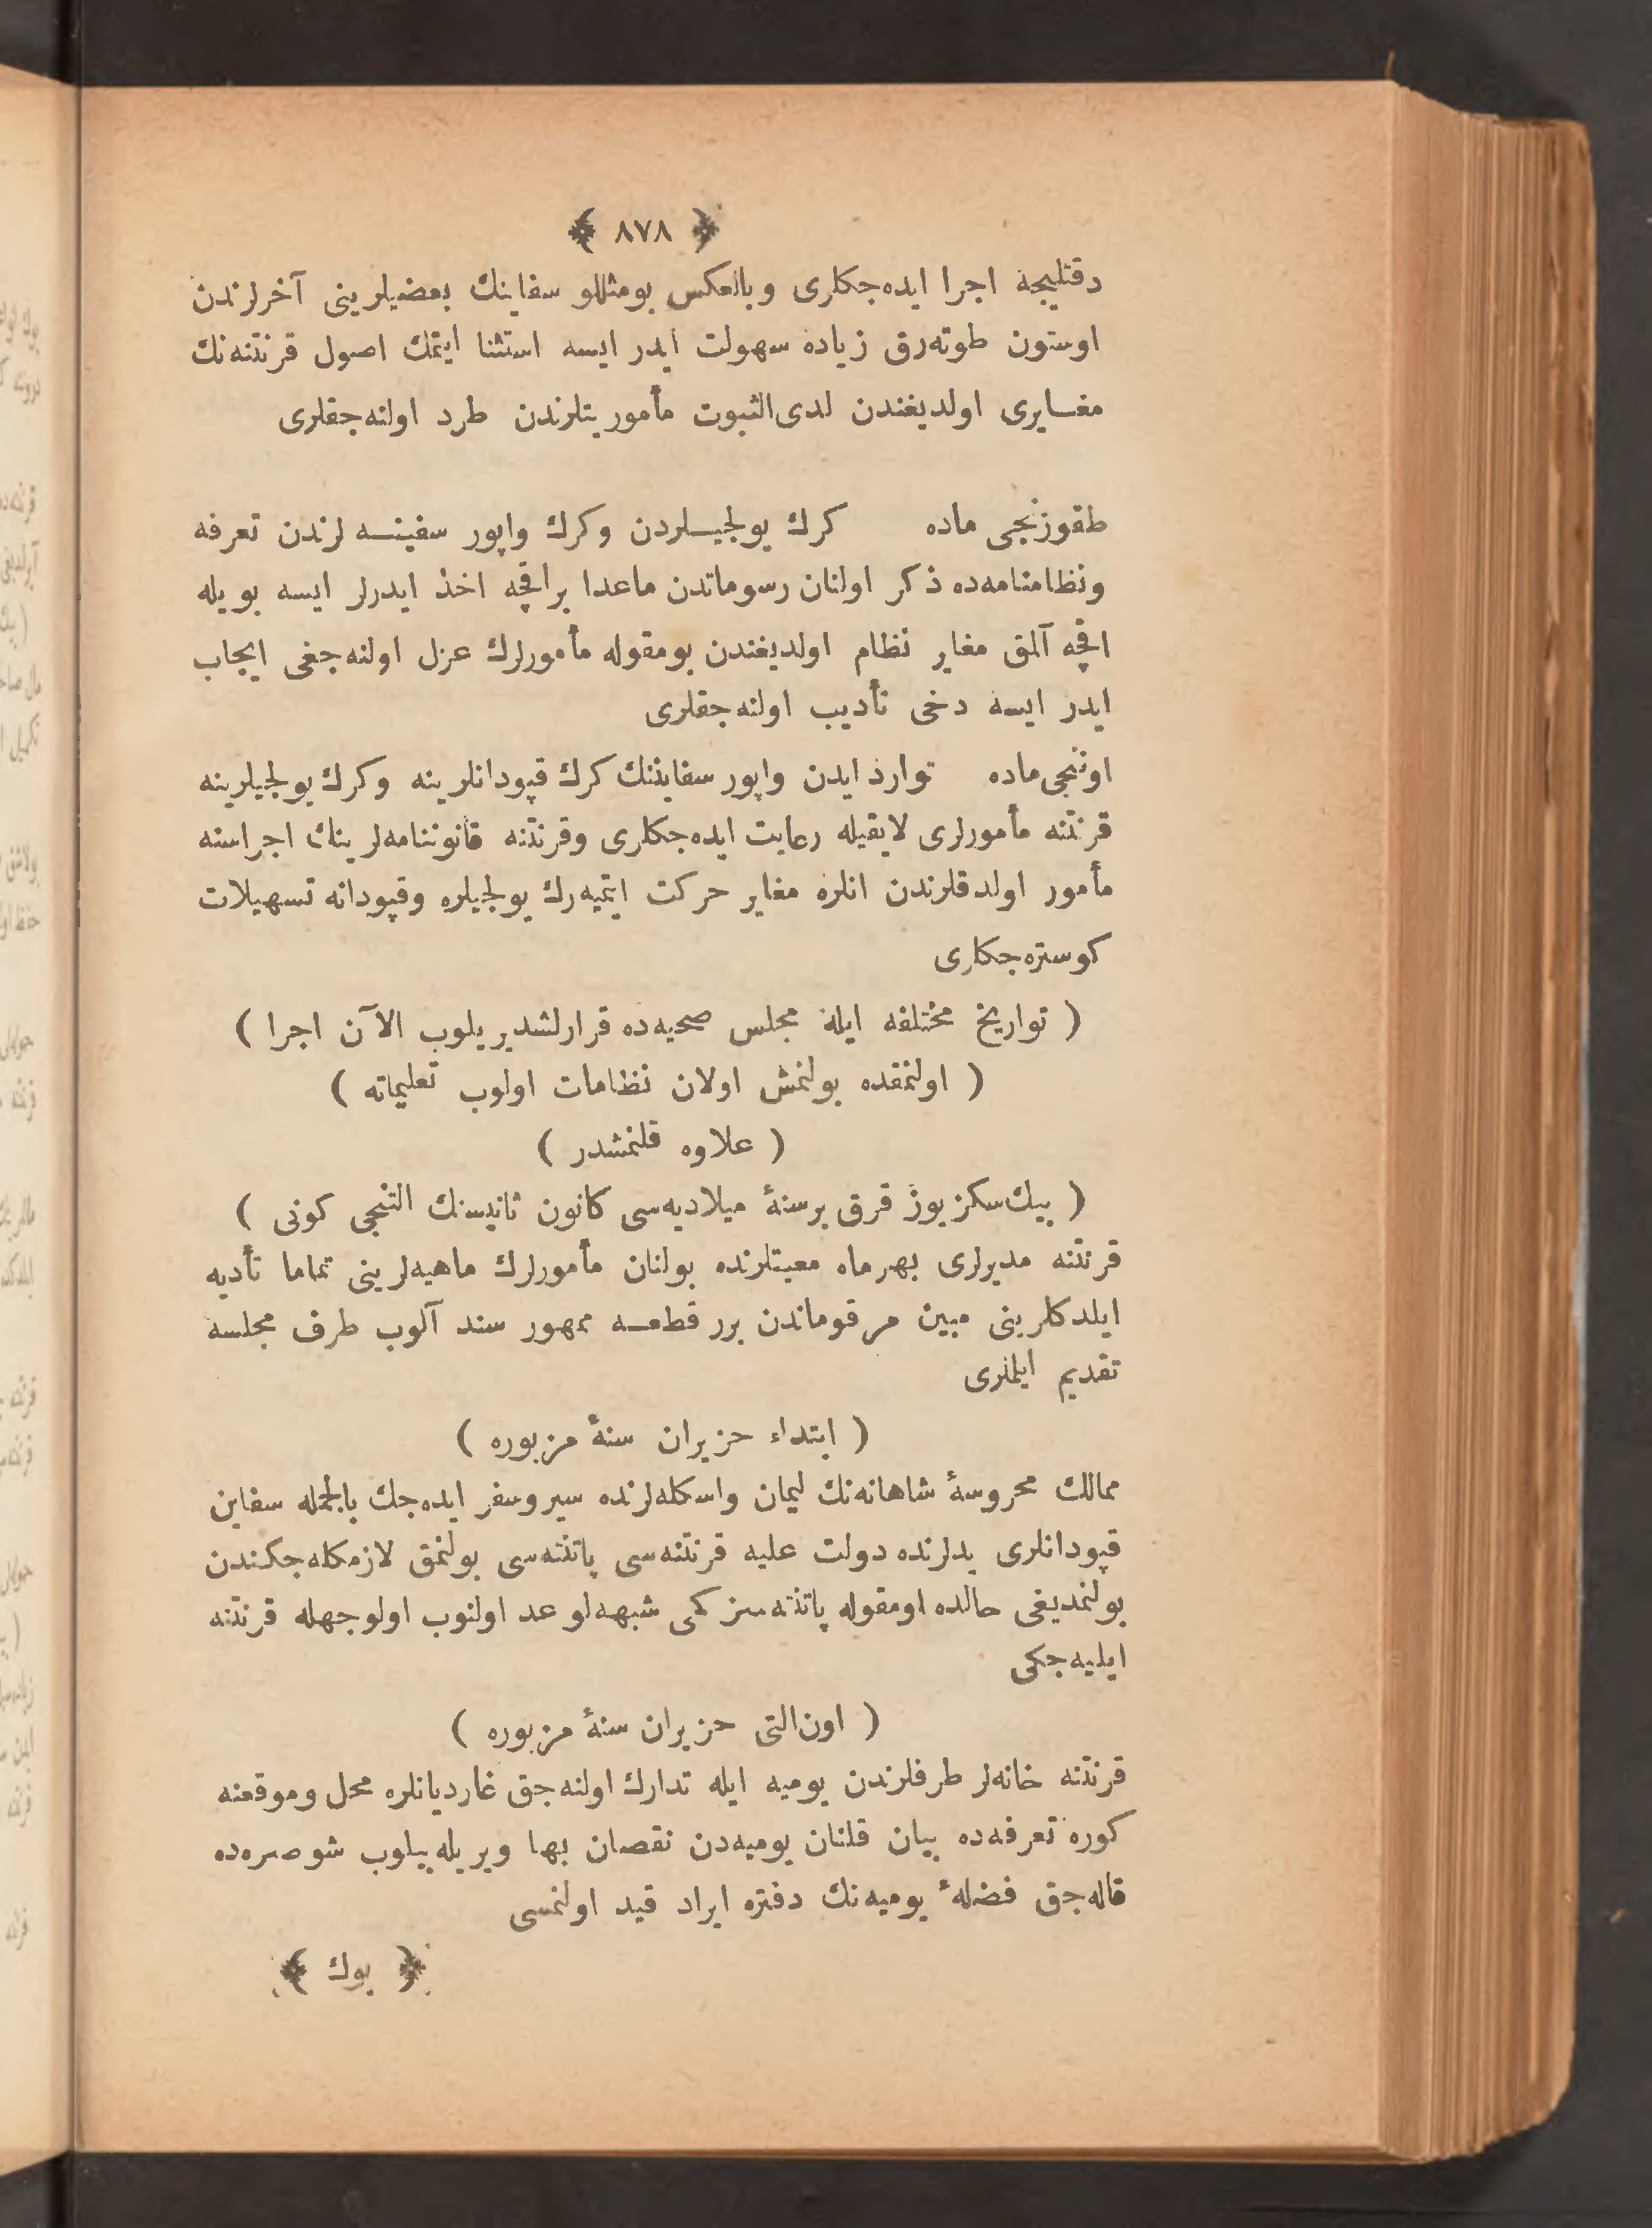 ﴿ ٨٧٨ ﴾
دقتليجه اجرا ايده‌جكلرى وبالعكس بومثللو سفاينك بعضيلرينى آخرلرندن
اوستون طوته‌رق زياده سهولت ايدر ايسه استثنا ايتمك اصول قرنتنه‌نك
مغايرى اولديغندن لدى‌الثبوت مأموريتلرندن طرد اولنه‌جقلرى
طقوزنجى ماده كرك يولجيلردن وكرك واپور سفينه‌لرندن تعرفه
ونظامنامه‌ده ذكر اولنان رسوماتدن ماعدا براقچه اخذ ايدرلر ايسه بويله
اقچه آلمق مغاير نظام اولديغندن بومقوله مأمورلرك عزل اولنه‌جغى ايجاب
ايدر ايسه دخى تأديب اولنه‌جقلرى
اوننجى ماده توارد ايدن واپور سفايننك كرك قپودانلرينه وكرك يولجيلرينه
قرنتنه مأمورلرى لايقيله رعايت ايده‌جكلرى وقرنتنه قانوننامه‌لرينك اجراسنه
مأمور اولدقلرندن انلره مغاير حركت ايتميه‌رك يولجيلره وقپودانه تسهيلات
كوستره‌جكلرى
( تواريخ مختلفه ايله مجلس صحيه‌ده قرارلشديريلوب الآن اجرا )
( اولنمقده بولنمش اولان نظامات اولوب تعليماته )
( علاوه قلنمشدر )
( بيك سكزيوز قرق برسنۀ ميلاديه‌سى كانون ثانيسنك التنجى كونى )
قرنتنه مديرلرى بهرماه معيتلرنده بولنان مأمورلرك ماهيه‌لرينى تماما تأديه
ايلدكلرينى مبين مرقوماندن برر قطعه ممهور سند آلوب طرف مجلسه
تقديم ايلملرى
( ابتداء حزيران سنۀ مزبوره )
ممالك محروسۀ شاهانه‌نك ليمان واسكله‌لرنده سيروسفر ايده‌جك بالجمله سفاين
قپودانلرى يدلرنده دولت عليه قرنتنه‌سى پاتنته‌سى بولنمق لازمكله‌جكندن
بولنمديغى حالده اومقوله پاتنته‌سز كمى شبهه‌لو عد اولنوب اولوجهله قرنتنه
ايليه‌جكى
( اون‌التى حزيران سنۀ مزبوره )
قرنتنه خانه‌لر طرفلرندن يوميه ايله تدارك اولنه‌جق غارديانلره محل وموقعنه
كوره تعرفه‌ده بيان قلنان يوميه‌دن نقصان بها ويريله‌بيلوب شو صره‌ده
قاله‌جق فضلۀ يوميه‌نك دفتره ايراد قيد اولنمسى
﴿ بوك ﴾